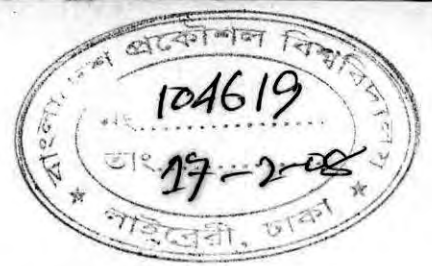 বাংলাদেশ প্রকৌশল বিশ্ববিদ্যালয়
নং 104619
তাং 17-2-08
★ লাইব্রেরী, ঢাকা ★